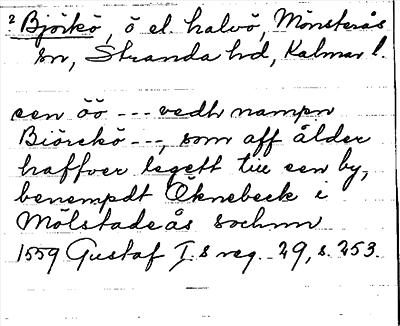 2 Björkö, ö el. halvö, Mönsterås
sn, Stranda hd, Kalmar l.
een öö --- vedh nampn
Biörckö ---, som aff ålder
haffver legett till een by,
benempdt Öknebeck i
Mölstadeås sochnn
1559 Gustaf I.s reg. 29, s. 253.